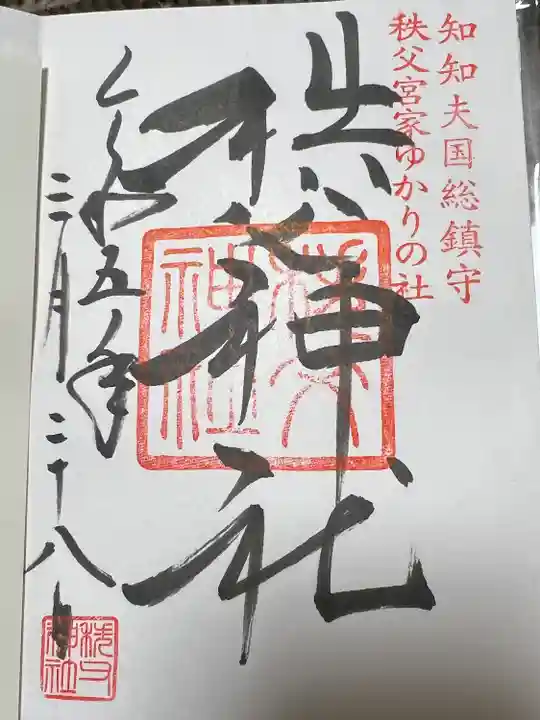 知知夫国総鎮守
秩父宮家ゆかりの社
秩父神社
秩父神社
令和五年
三月二十八日
秩父神社